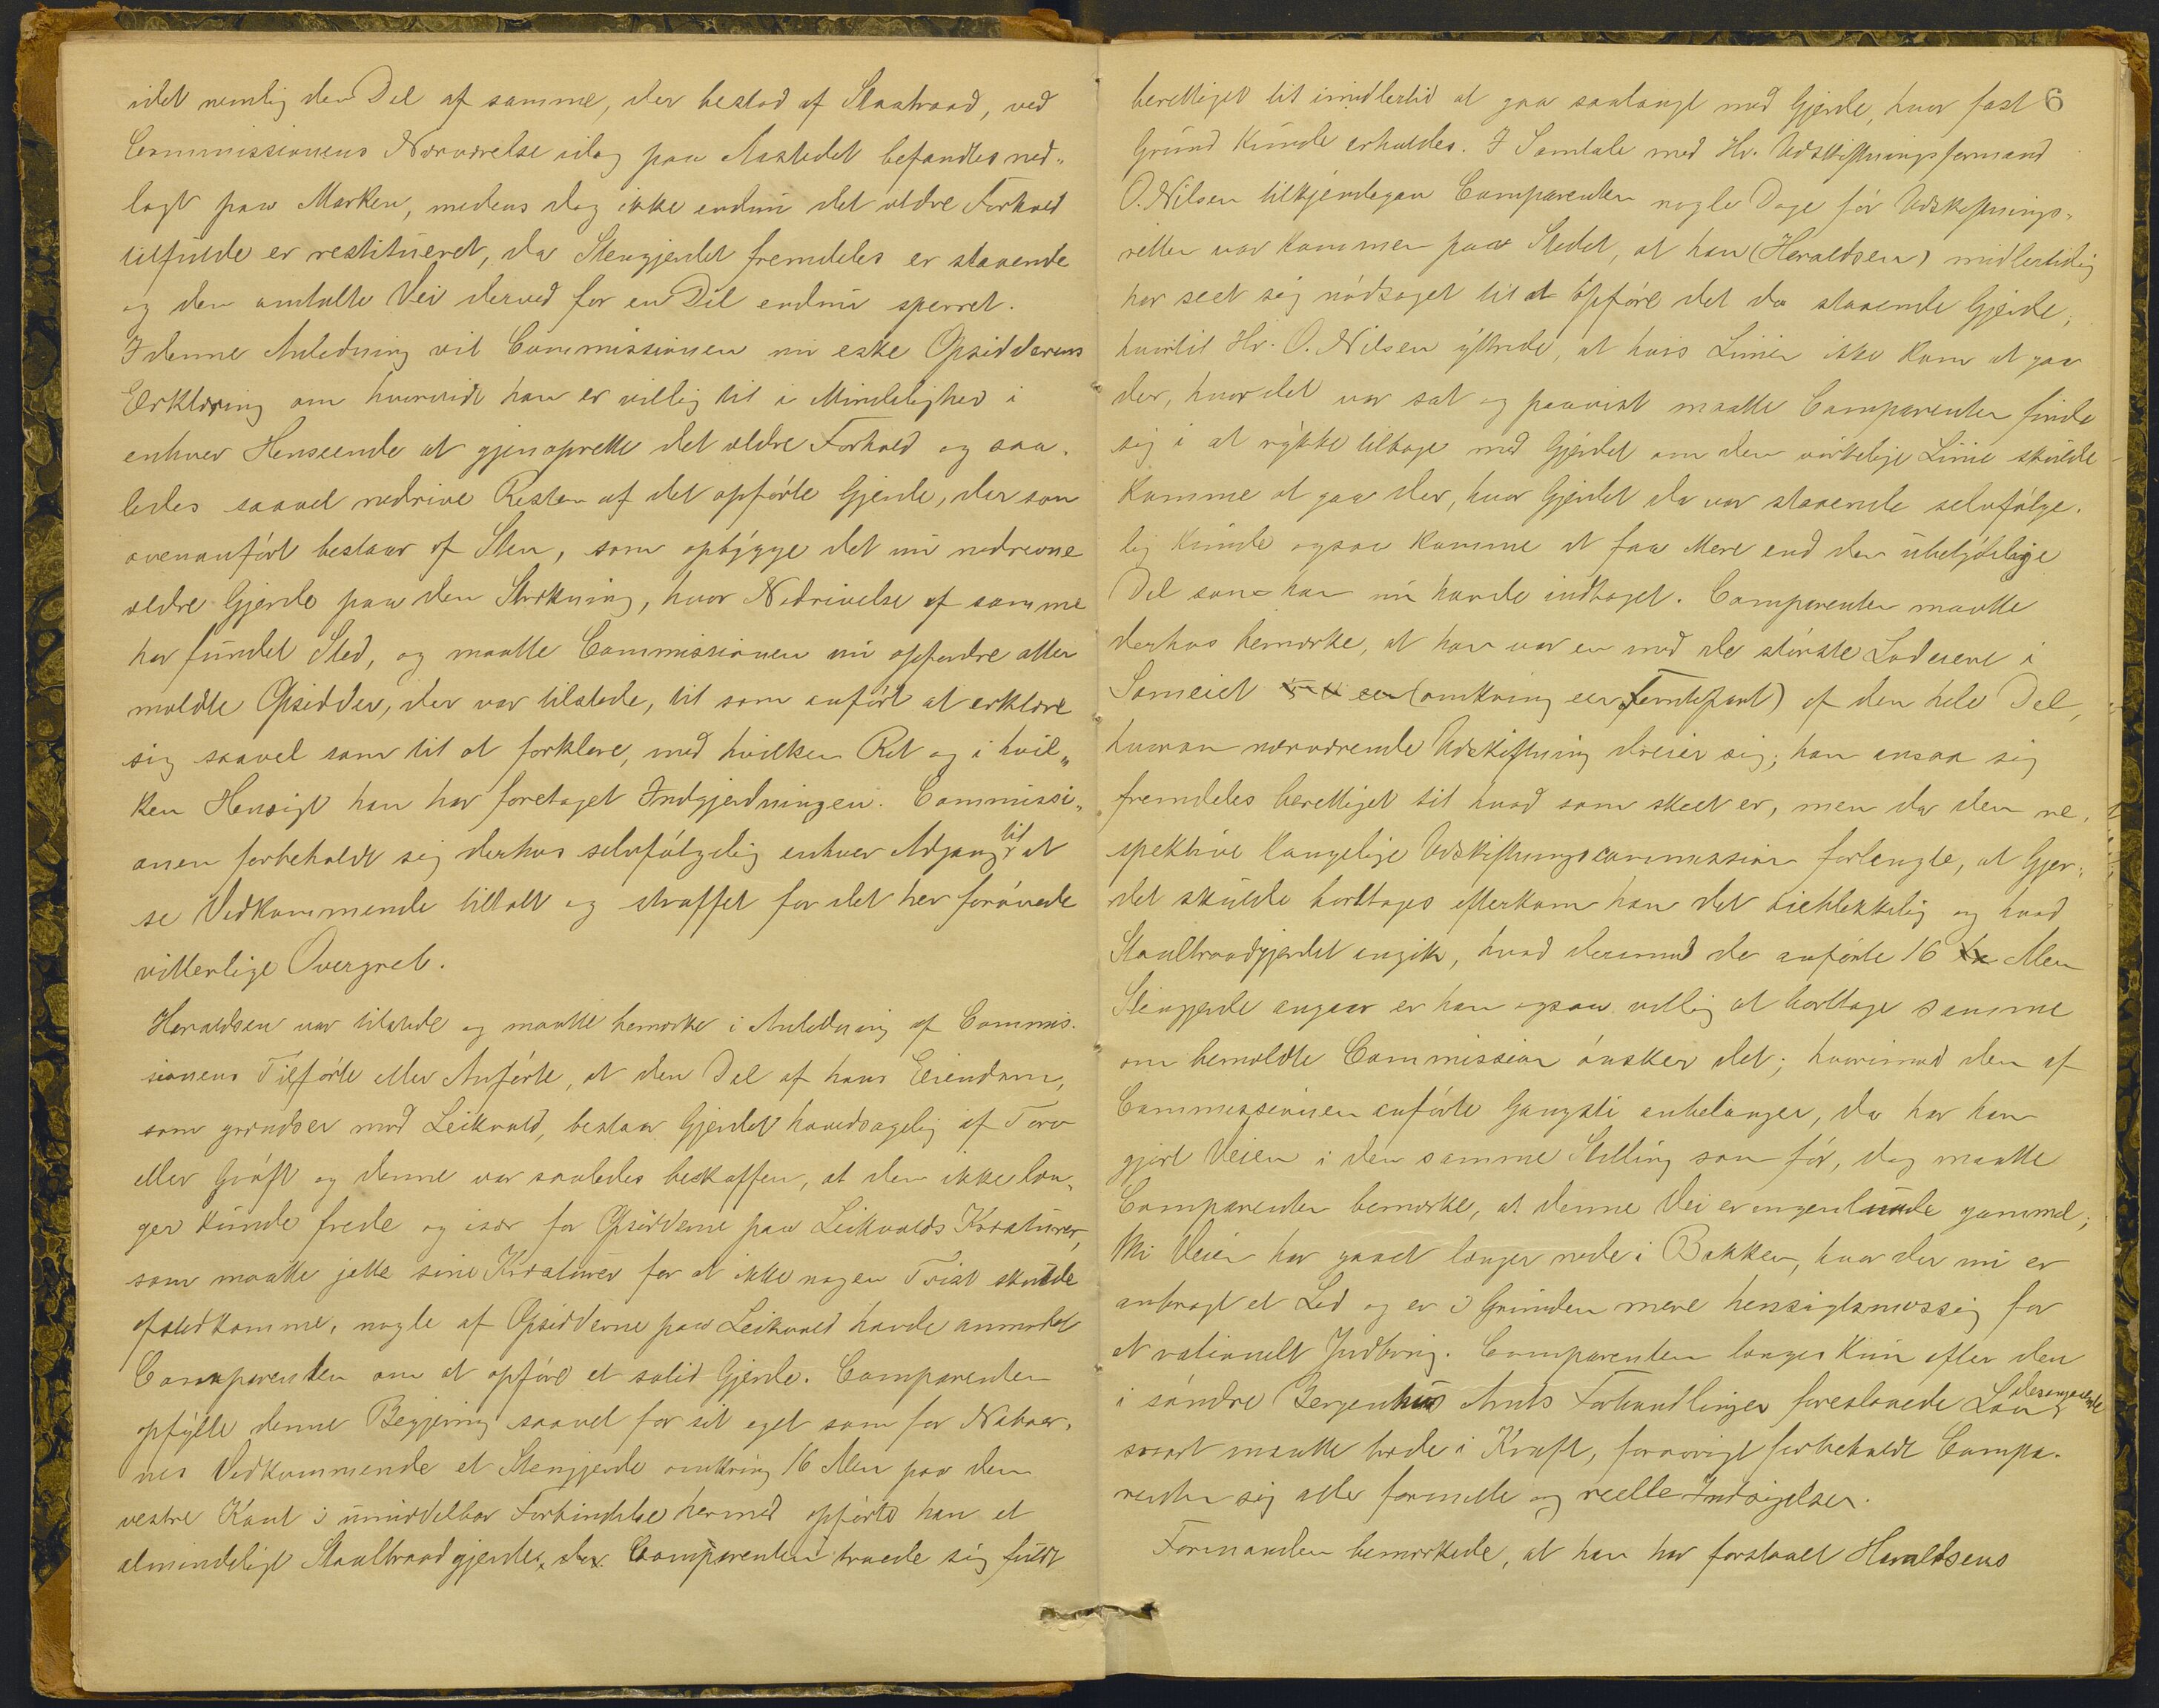 idet nemlig den Del af samme, der bestod af Staaltraad, ved
Commissionens Nærværelse idag paa Aastedet befandtes ned„
lagt paa Marken, medens dog ikke endnu det ældre Forhold
tilfulde er restitueret, da Stengjerdet fremdeles er staaende
og den omtalte Vei derved for en Del endnu sperret.
I denne Anledning vil Commissionen nu eske Opsidderens
Erklæring om hvorvidt han er villig til i Mindelighed i
enhver Henseende at gjenoprette det ældre Forhold og saa„
ledes saavel nedrive Resten af det opførte Gjerde, der som
ovenanført bestaar af Sten, som opbygge det nu nedrevne
ældre Gjerde paa den Strækning, hvor Nedrivelse af samme
har fundet Sted, og maatte Commissionen nu opfordre atter
meldte Opsidder, der var tilstede, til som anført at erklære
sig saavel som til at forklare, med hvilken Ret og i hvil„
ken Hensigt han har foretaget Indgjerdningen. Commissi„
onen forbeholdt sig derhos selvfølgelig enhver Adgang til at
se Vedkommende tiltalt og straffet for det her forøvede
vitterlige Overgreb.
Haraldsen var tilstede og maatte bemærke i Anledning af Commis„
sionens Tilførte eller Anførte, at den Del af hans Eiendom,
som grændser mod Leikvold, bestaar Gjerdet hovedsagelig af Torv
eller Grøft og denne var saaledes beskaffen, at den ikke læn„
ger kunde frede og især for Opsidderne paa Leikvolds Kreaturer,
som maatte jette sine Kreaturer for at ikke nogen Tvist skulde
afstedkomme, nogle af Opsidderne paa Leikvold havde anmodet
Comparenten om at opføre et solid Gjerde. Comparenten
opfylte denne Begjering saavel for sit eget som for Naboer„
nes Vedkommende et Stengjerde omkring 16 Alen paa den
vestre Kant i umiddelbar Forbindelse hermed opførte han et
almindeligt Staaltraadgjerde, da Comparenten troede sig fuldt
6
berettiget til imidlertid at gaa saalangt med Gjerde, hvor fast
Grund kunde erholdes. I Samtale med Hr. Udskiftningsformand
O. Nilsen tilkjendegav Comparenten nogle Dage før Udskiftnings„
retten var kommen paa Stedet, at han (Haraldsen) midlertidig
har seet sig nødsaget til at opføre det da staaende Gjerde,
hvortil Hr. O. Nilsen yttrede, at hvis Linien ikke kom at gaa
der, hvor det var sat og paavist maatte Comparenten finde
sig i at rykke tilbage med Gjerdet om den virkelige Linie skulde
komme at gaa der, hvor Gjerdet da var staaende selvfølge„
lig kunde ogsaa komme at faa Mere end den ubetydelige
Del som han nu havde indtaget. Comparenten maatte
derhos bemærke, at han var en med de største Lodeiere i
Sameiet (omkring een Femtepart) af den hele Del,
hvorom nærværende Udskiftning dreier sig; han ansaa sig
fremdeles berettiget til hvad som skeet er, men da den re„
spektive kongelige Udskiftningscommission forlangte, at Gjer„
det skulde borttages efterkom han det øieblikkelig og hvad
Staaltraadgjerdet angik, hvad derimod de anførte 16 Alen
Stengjerde angaar er han ogsaa villig at borttage samme
om bemeldte Commission ønsker det; hvorimod den af
Commissionen anførte Gangsti anbelanger, da har han
gjort Veien i den samme Stilling som før, dog maatte
Comparenten bemærke, at denne Vei er ingenlunde gammel;
thi Veien har gaaet længer nede i Bakken, hvor der nu er
anbragt et Led og er i Grunden mere hensigtsmæssig for
et rationelt Jndbring. Comparenten længes kun efter den
i søndre Bergenhus Amts Forhandlinger foreslaaede Lov desangaaende
snart maatte træde i Kraft, forøvrigt forbeholdt Compa„
renten sig alle formelle og reelle Indsigelser.
Formanden bemærkede, at han har forstaaet Haraldsens